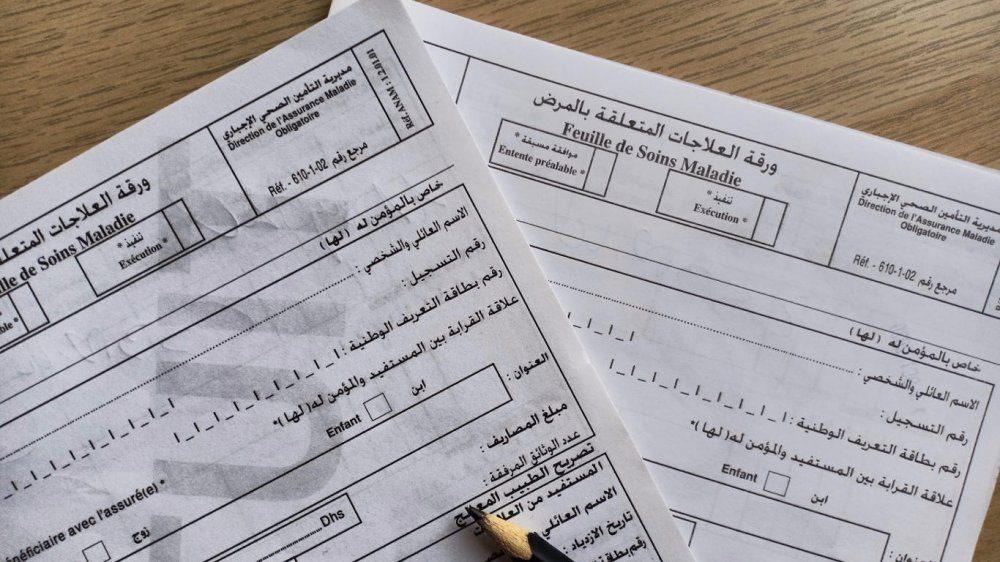 ورقة العلاجات المتعلقة
Feuille de Soins Maladie
تنفيذ *
Exécution *
مديرية التأمين الصحي الإجباري
Direction de l'Assurance Maladie
Obligatoire
مرجع رقم 02-1-610 - .Réf
Réf. ANAM : 1.2.01.01
خاص بالمؤمن له (لها)
الاسم العائلي والشخصي :
رقم التسجيل :
رقم بطاقة التعريف الوطنية :
علاقة القرابة بين المستفيد والمؤمن له (لها)*
bénéficiaire avec l'assuré(e) *
زوج
Enfant
ابن
العنوان :
مبلغ المصاريف :
Dhs
عدد الوثائق المرفقة :
تصريح الطبيب المعالج
المستفيد من العلاجات
الاسم العائلي
تاريخ الازدياد :
ورقة العلاجات المتعلقة بالمرض
Feuille de Soins Maladie
موافقة مسبقة *
Entente préalable *
تنفيذ *
Exécution *
مديرية التأمين الصحي الإجباري
Direction de l'Assurance Maladie
Obligatoire
مرجع رقم 02-1-610 - .Réf
خاص بالمؤمن له (لها)
الاسم العائلي والشخصي :
رقم التسجيل :
رقم بطاقة التعريف الوطنية :
علاقة القرابة بين المستفيد والمؤمن له (لها)*
Enfant
ابن
العنوان :